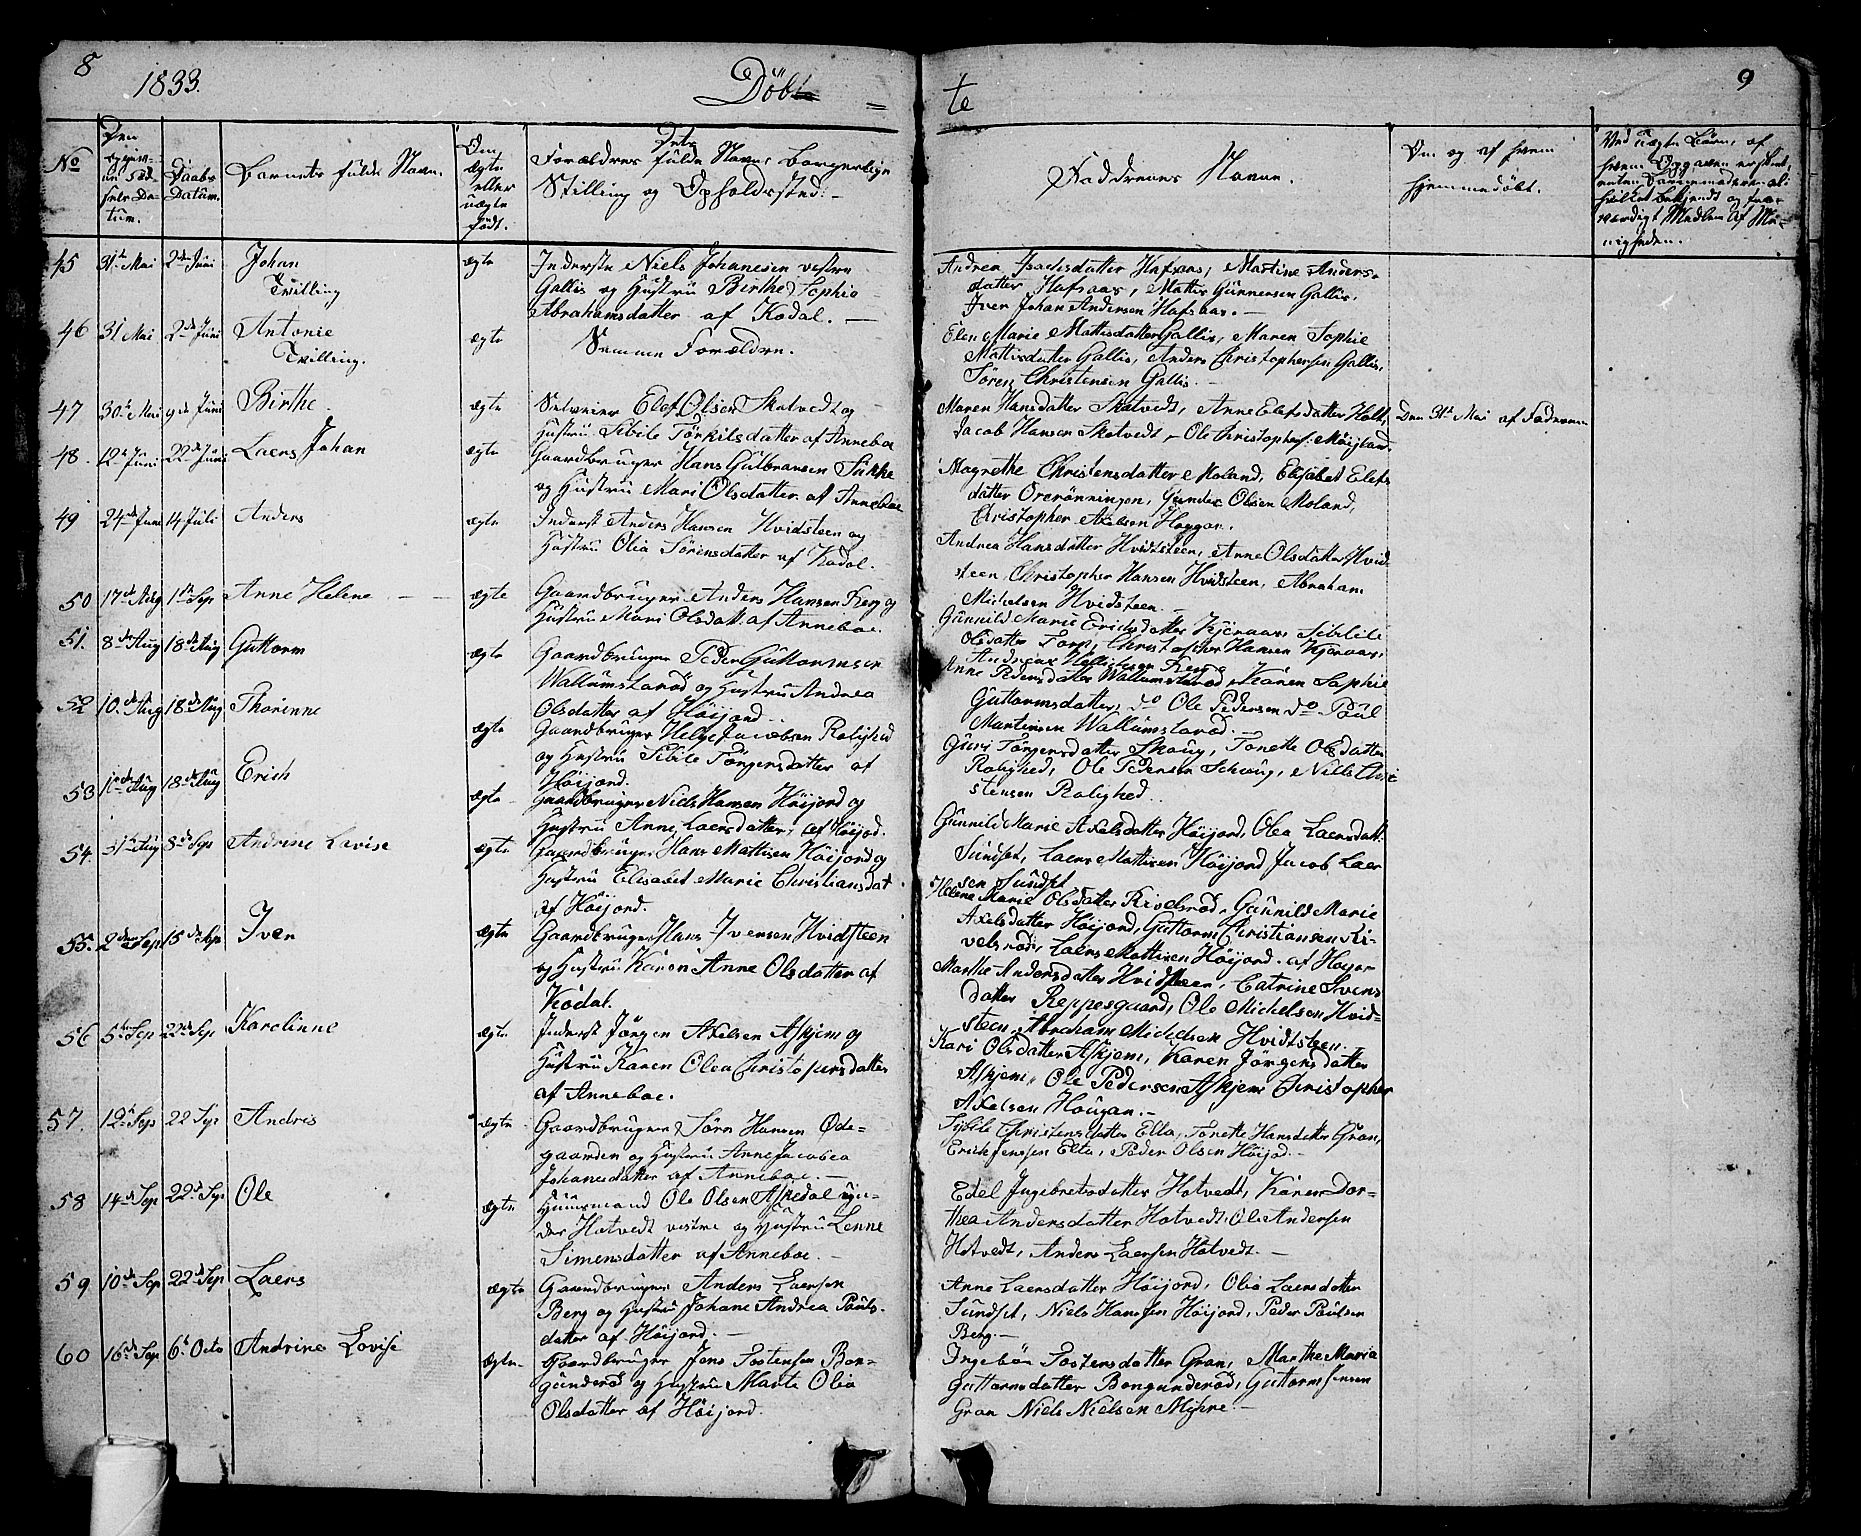 8
1833.
Döbt=
te
9
No
Den
Daabs
Datum.
Barnets fulde Navn.
Om
ægte
eller
uægte
født.
Forældres fulde Navne borgerlige
Stilling og Opholdssted.
Faddrenes Navne.
Om og af hvem
hjemmedöbt.
45 31te Mai 2den Juni Johan
Tvilling
ægte
Inderste Niels Johanesen vestre
Gallis og Hustru Birthe Sophie
Abrahamsdatter af Kodal. —
Andrea Isachsdatter Hafsaas, Martine Anders-
datter Hafsaas, Mattis Gunnersen Gallis,
Iver Johan Andersen Hafsaas. —
46 31 Mai 2de Juni Antonie
Tvilling.
ægte
Samme Forældre.
Elen Marie Mattisdatter Gallis, Maren Sophie
Mattisdatter Gallis, Anders Christophersen Gallis,
Sören Christensen Gallis.
47 30te Mai 9de Juni Birthe
ægte
Elef Olsen Skatvedt og
Hustru Sibile Törkilsdatter af Anneboe
Maren Hansdatter Skatvedt, Anne Elefsdatter Holt,
Jacob Hansen Skatvedt, Ole Christophers: Möijland.
Den 31te Mai af Faderen
48. 12te Juni 22de Juni Laers Johan
ægte
Gaardbruger Hans Gulbransen Sukke
og Hustru Mari Olsdatter af Anneboe
Magrethe Christensdatter Moland, Elisabet Elefs
datter Orerönningen, Gunder Olsen Moland,
Christopher Axelsen Hoggan.
49 24de Juni 14 Juli Anders
ægte
Inderst Anders Hansen Hvidsteen og
Hustru Olia Sörensdatter af Kodal.
Andrea Hansdatter Hvidtsteen, Anne Olsdatter Hvid
steen, Christopher Hansen Hvidsteen, Abraham
Michelsen Hvidsteen. —
50 17de Aug 1ste Sep Anne Helene
ægte
Gaardbruger Anders Hansen Berg og
Hustru Mari Olsdatt. af Anneboe.
Gunnild Marie Erichsdatter Kjeraas, Sibbile
Olsdatter Torp, Christopher Hansen Kjeraas,
Andreas Berg
51. 8de Aug 18de Aug Guttorm
ægte
Gaardbruger Peder Guttormsen
Wallumstaröd og Hustru Andrea
Olsdatter af Höijord.
Anne Pedersdatter Wallumstaröd, Karen Sophie
Guttormsdatter, do Ole Pedersen do Poul
Martinsen Wallumstaröd. —
52 10.de Aug 18de Aug Thorinne
ægte
Gaardbruger Helge Jacobsen Rolighed
og Hustru Sibile Törgersdatter af
Höijord.
Guri Törgersdatter Skoug, Tonette Olsdatter
Rolighed, Ole Pedersen Schoug, Niels Chri
stensen Rolighed.
53 10de Aug 18de Aug Erich
ægte
Gaardbruger Niels Hansen Höijord og
Hustru Anne Laersdatter, af Höijord.
Gunnild Marie Axelsdatter Höijord, Olea Laersdatt.
Sundset, Laers Mattisen Höijord, Jacob Laer
sen Sundset
54. 31te Aug 8de Sep Andrine Lovise
ægte
Gaardbruger Hans Mattisen Höijord og
Hustru Elisabet Marie Christiansdat
af Höijord.
Helene Marie Olsdatter Rivelsröd, Gunnild Marie
Axelsdatter Höijord, Guttorm Christiansen Ri-
velsröd, Laers Mattisen Höijord. af Höyor
55. 2den Sep 15de Sep Iver
ægte
Gaardbruger Hans Iversen Hvidsteen
og Hustru Karen Anne Olsdatter af
Kodal.
Marthe Andersdatter Hvidsteen, Catrine Ivers
datter Reppesgaard, Ole Michelsen Hvid-
steen, Abraham Michelsen Hvidtsteen. —
56 5te Sep 22de Sep Karolinne
ægte
Inderst Jörgen Axelsen Askjem og
Hustru Karen Olea Christophersdatter
af Anneboe.
Kari Olsdatter Askjem, Karen Jörgensdatter
Askjem, Ole Pedersen Askjem Christopher
Axelsen Hougan. —
57. 12te Sep 22 Sep Andris
ægte
Gaardbruger Sörn Hansen Öde-
gaarden og Hustru Anne Jacobea
Johanesdatter af Anneboe. —
Sybile Christensdatter Elta, Tonette Hansdatter Gran,
Erich Jenssen Elta, Peder Olsen Höijod. —
58 14de Sep 22de Sep Ole
ægte
Huusmand Ole Olsen Askedal un-
der Hotvedt vestre og Hustru Lenne
Simensdatter af Anneboe. —
Edel Ingebretsdatter Hotvedt, Karen Dor-
thea Andersdatter Hotvedt, Ole Andersen
Hotvedt, Anders Laersen Hotvedt. —
59 10de Sep 22de Sep Laers
ægte
Gaardbruger Anders Laersen
Berg og Hustru Johane Andrea Pouls-
datter af Höijord. —
Anne Laersdatter Höijord, Olia Laersdatter
Sundset, Niels Hanssen Höijord, Peder Poulsen
Berg. —
60 16de Sep 6te Octo Andrine Lovise
ægte
Gaardbruger Jens Sostensen Bon-
gunderöd og Hustru Marte Olia
Olsdatter af Höijord.
Ingebör Sostensdatter Gran, Marthe Maria
Guttormsdatter Bongunderöd, Guttorm Jensen
Gran Niels Nielsen Myhre. —